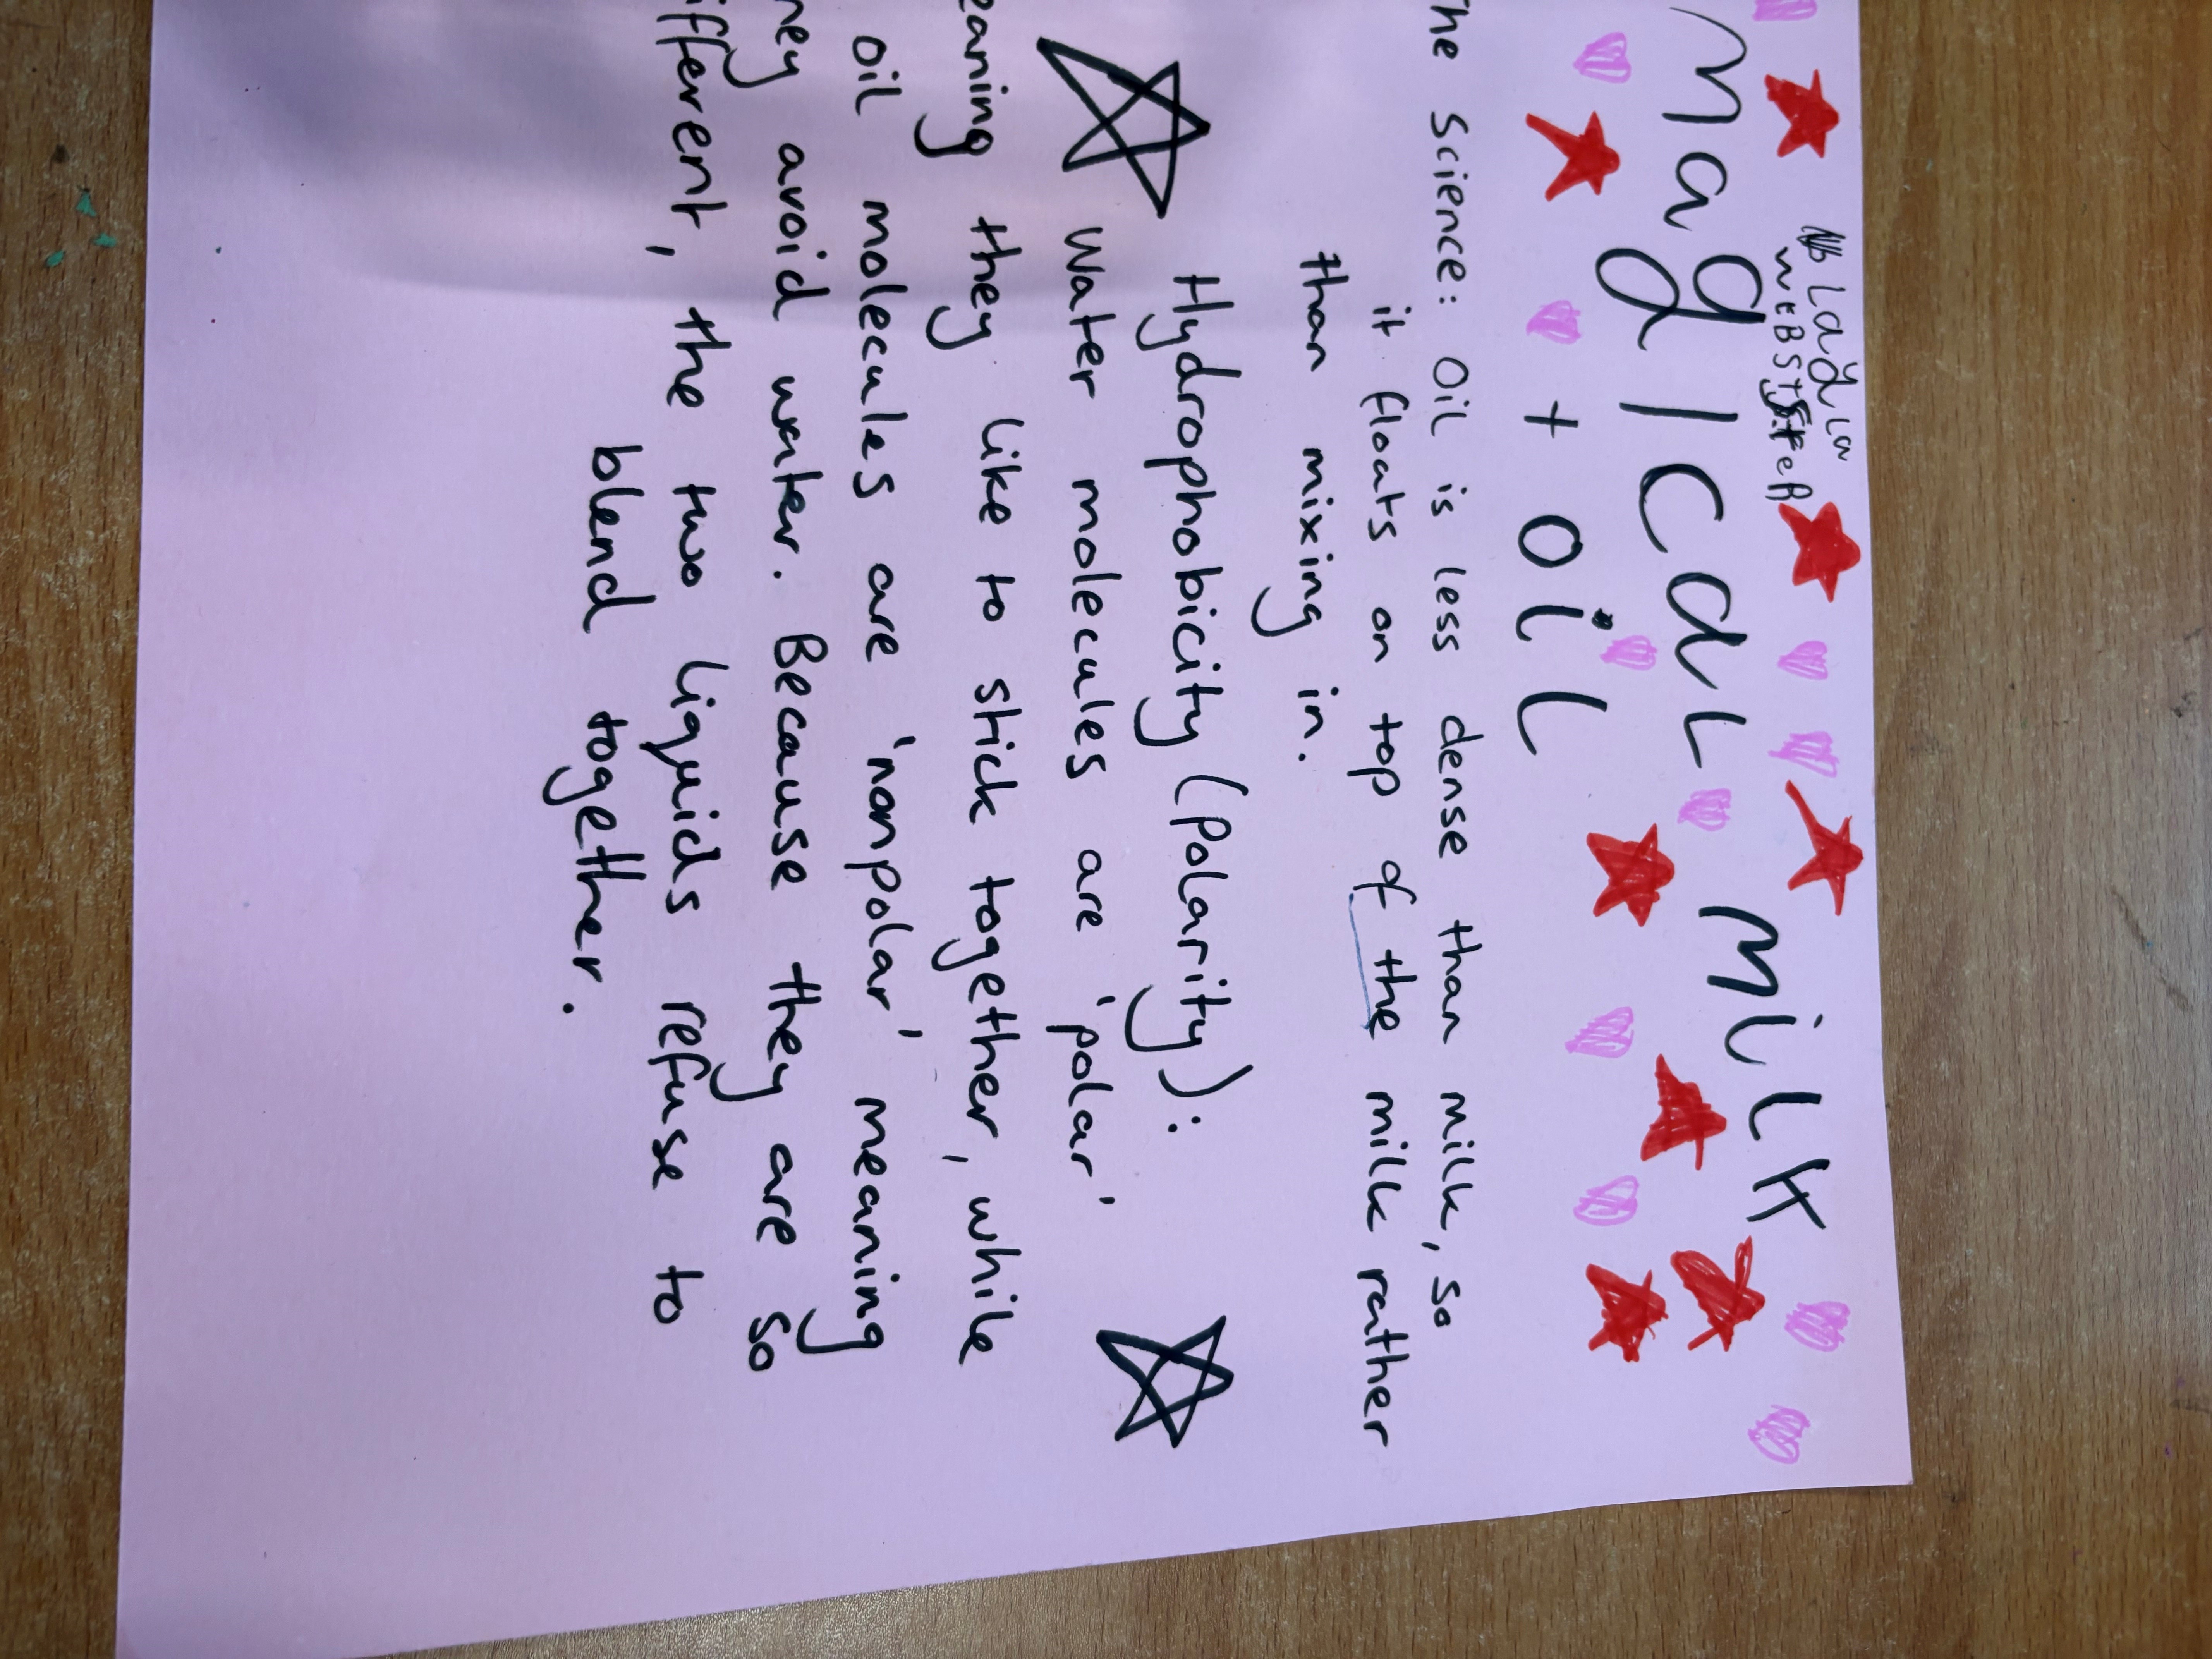 Ladyln
WEBSTER
Magical Milk
+ oil
he Science: Oil is less dense than milk, so
it floats on top of the milk rather
than mixing in.
Hydrophobicity (Polarity):
Water molecules are 'polar'
eaning they like to stick together, while
oil molecules are 'nonpolar' meaning
hey avoid water. Because they are so
ifferent, the two liquids refuse to
blend together.